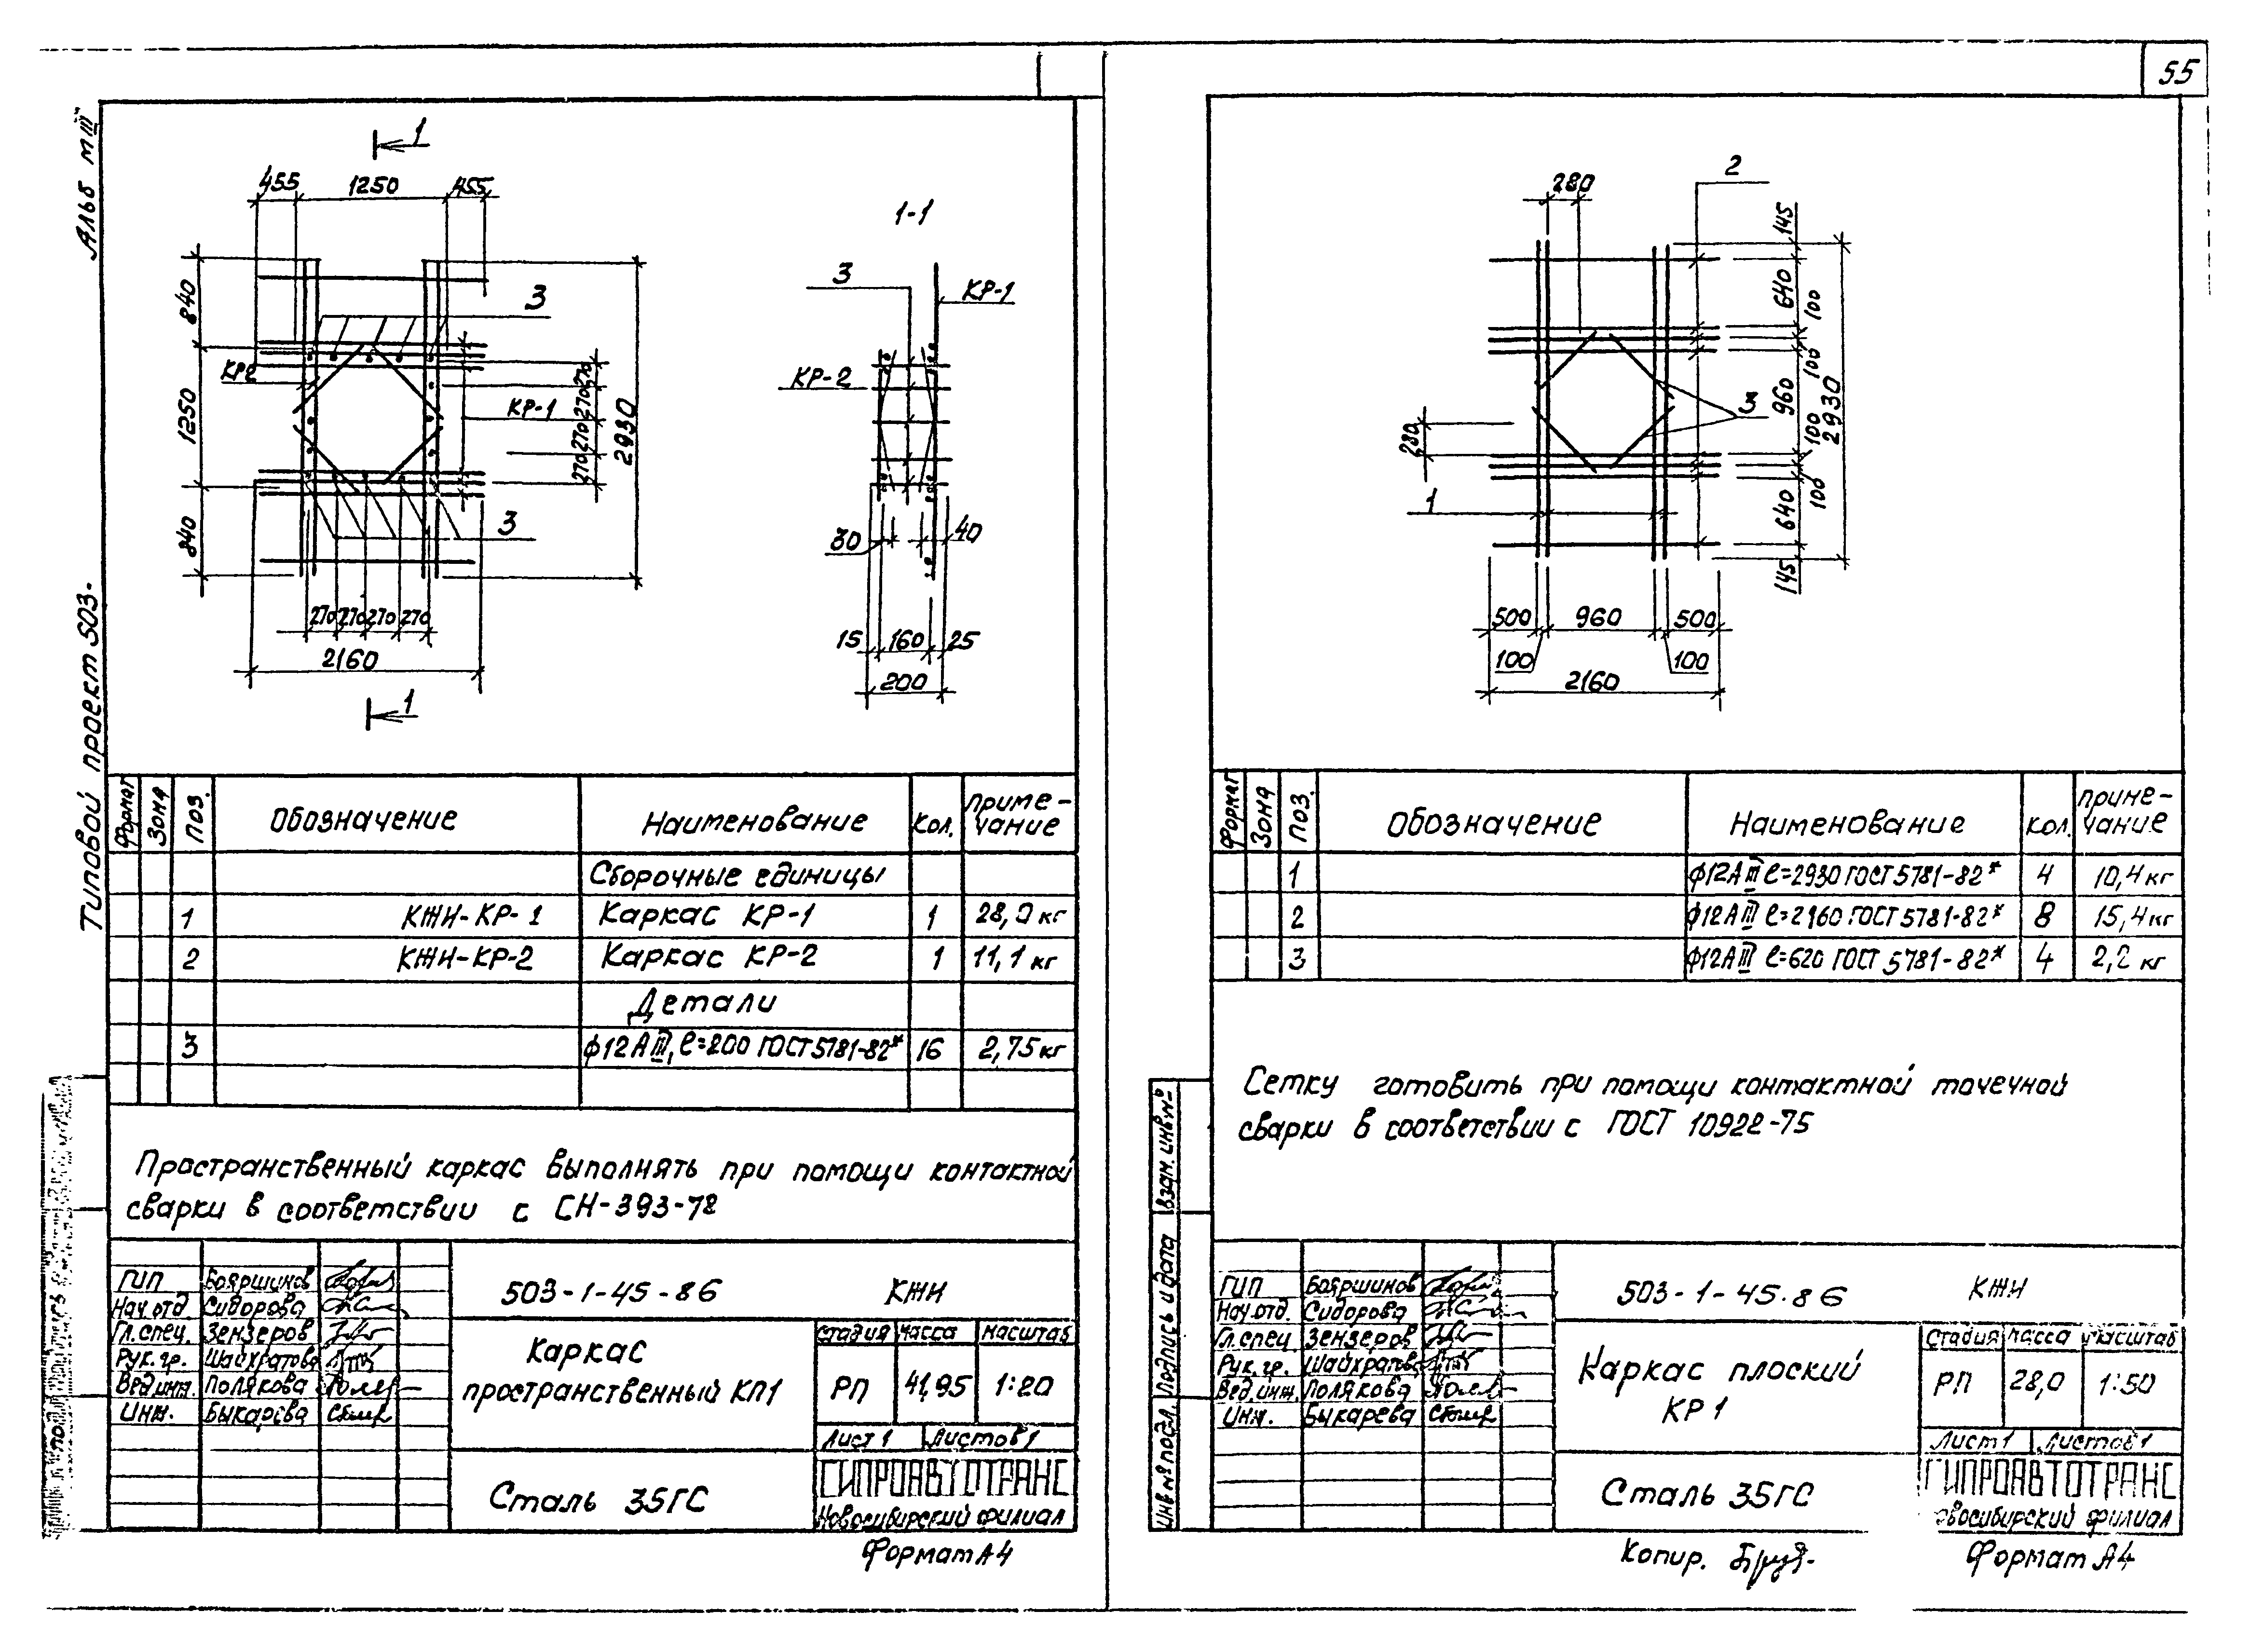 55
Альб м III
Типовой проект 503-
1
455 1250 455
840
1250
840
3
КР2
КР-1
270 270 270 270
2930
3
270 270 270 270
2160
1
1-1
3
КР-1
КР-2
30 40
15 160 25
200
Формат Зона Поз. Обозначение Наименование Кол. Приме-
чание
Сборочные единицы
1 КЖИ-КР-1 Каркас КР-1 1 28,0 кг
2 КЖИ-КР-2 Каркас КР-2 1 11,1 кг
Детали
3 ф12 АIII, l=200 ГОСТ 5781-82* 16 2,75 кг
Пространственный каркас выполнять при помощи контактной
сварки в соответствии с СН-393-72
ГИП Бояршинов
Нач.отд. Сидорова
Гл.спец. Зензеров
Рук.гр. Шайхратова
Вед.инж. Полякова
Инж. Быкарева
503-1-45-86 КЖИ
Каркас
пространственный КП1
Стадия Масса Масштаб
РП 41,95 1:20
Лист 1 Листов 1
Сталь 35ГС
ГИПРОАВТОТРАНС
Новосибирский филиал
Формат А4
280
2
145
640
100
100
960
2930
100
100
640
145
3
280
1
500 960 500
100 100
2160
Формат Зона Поз. Обозначение Наименование Кол. Приме-
чание
1 ф12АIII l=2930 ГОСТ 5781-82* 4 10,4 кг
2 ф12АIII l=2160 ГОСТ 5781-82* 8 15,4 кг
3 ф12АIII l=620 ГОСТ 5781-82* 4 2,2 кг
Сетку готовить при помощи контактной точечной
сварки в соответствии с ГОСТ 10922-75
Инв № подл. Подпись и дата Взам. инв №
ГИП Бояршинов
Нач.отд. Сидорова
Гл.спец. Зензеров
Рук.гр. Шайхратова
Вед.инж. Полякова
Инж. Быкарева
503-1-45.86 КЖИ
Каркас плоский
КР 1
Стадия Масса Масштаб
РП 28,0 1:50
Лист 1 Листов 1
Сталь 35ГС
ГИПРОАВТОТРАНС
овосибирский филиал
Копир.
Формат А4